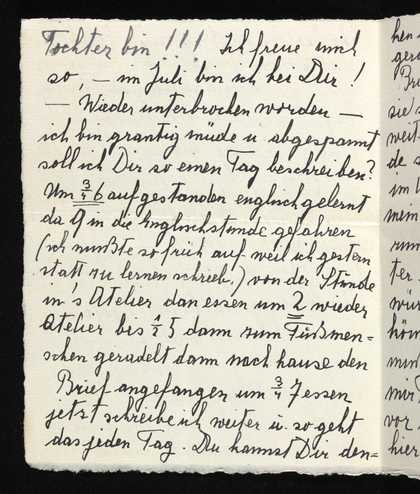 Tochter bin !!! Ich freue mich
so, – im Juli bin ich bei Dir !
– Wieder unterbrochen worden –
ich bin grantig müde u abgespannt
soll ich Dir so einen Tag beschreiben?
Um ¾ 6 aufgestanden englisch gelernt
da 9 in die Englischstunde gefahren
(ich mußte so früh auf weil ich gestern
statt zu lernen schrieb.) von der Stunde
in's Atelier dan essen um 2 wieder
Atelier bis ½ 5 dann zum Füßmen=
schen geradelt dann nach hause den
Brief angefangen um ¾ 7 essen
jetzt schreibe ich weiter u. so geht
das jeden Tag. Du kannst Dir den=